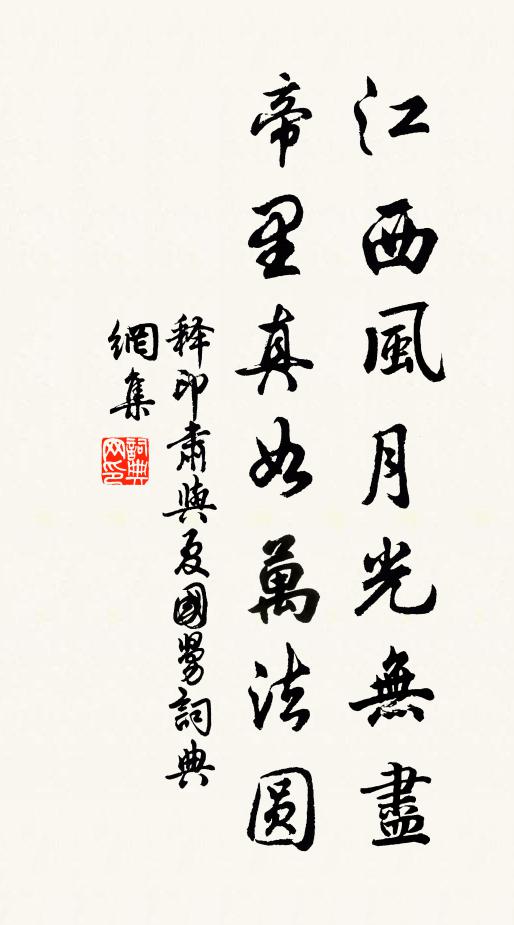 江西風月光無盡
帝里真如萬法圆
释印肅與夏國勞詞典
網集
詞典
网印